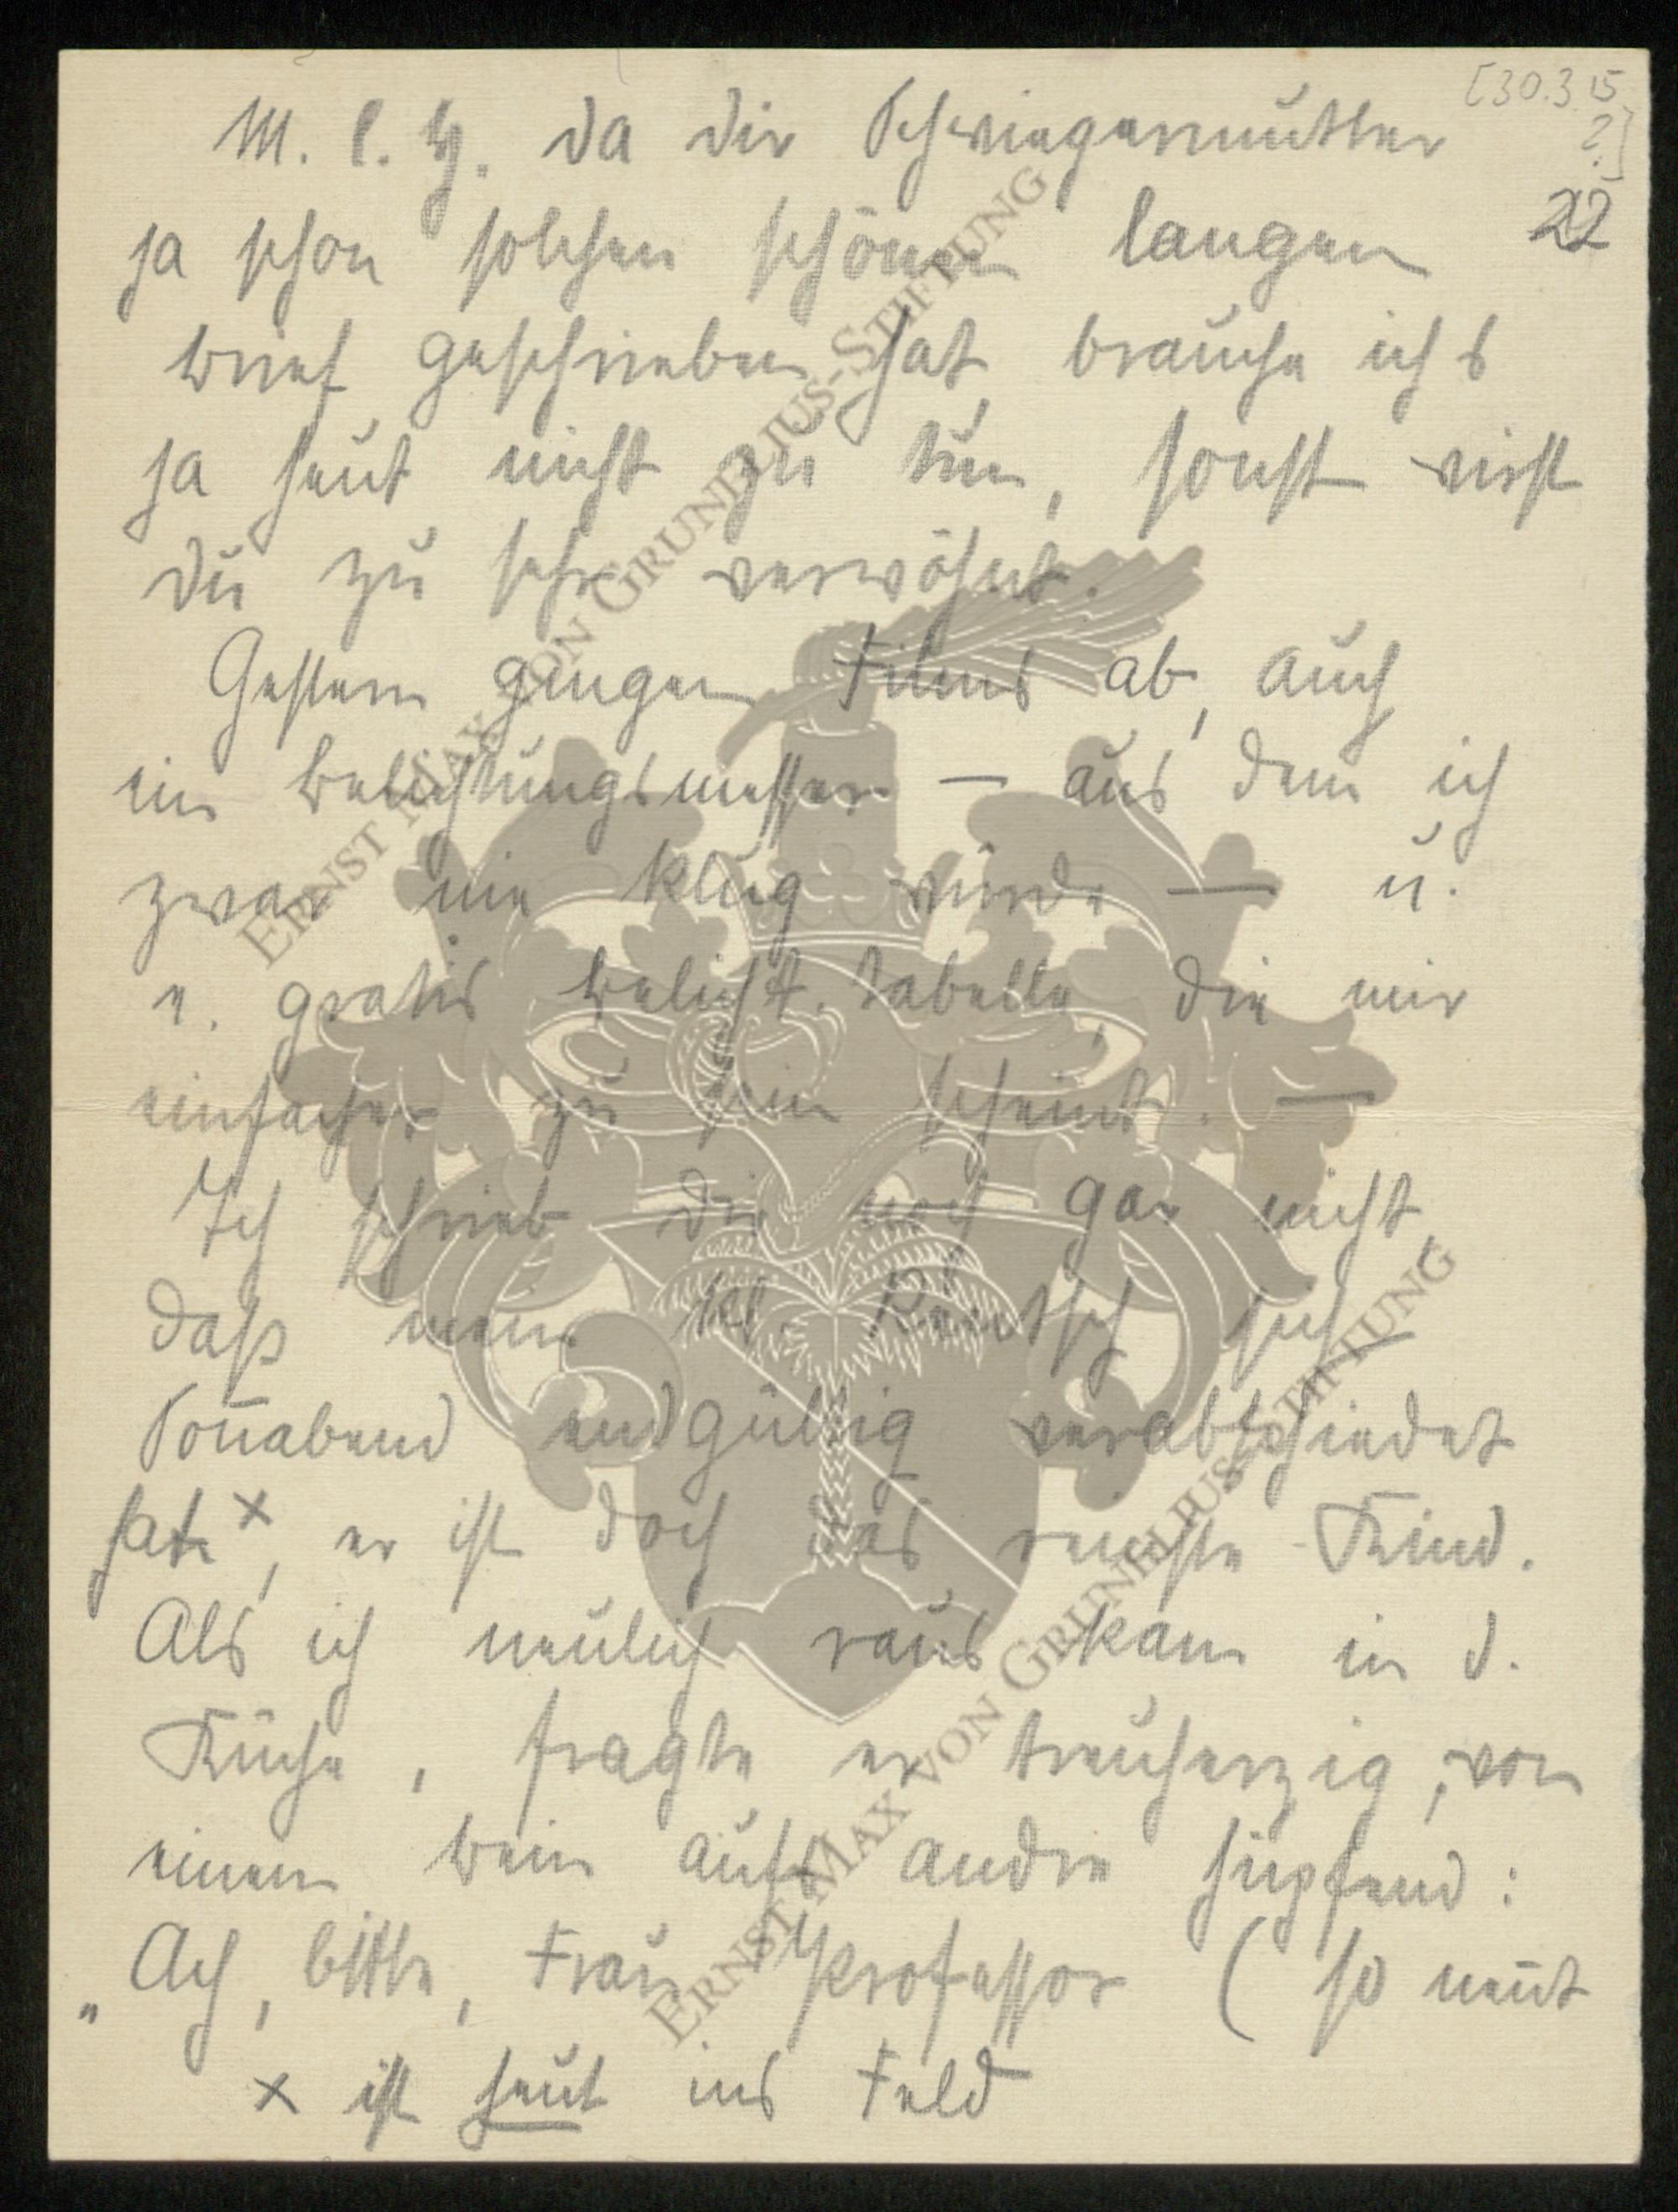 [30.3.15
?]
M. l. H. da die Schwiegermutter
22
ja schon solchen schönen langen
brief geschrieben hat brauche ichs
ja heut nicht zu tun, sonst wirst
du zu sehr verwöhnt.
Gestern gingen Films ab, auch
ein belichtungsmesser — aus dem ich
zwar nie klug würde — u.
e. gratis belicht. tabelle, die mir
einfacher zu sein scheint. —
Ich schrieb dir noch gar nicht,
daß mein kl. sich
Soñabend endgültig verabschiedet
hat x, er ist doch das reinste Kind.
Als ich neulich raus kam in d.
Küche, fragte er treuherzig, von
einem bein aufs andre hüpfend:
„Ach, bitte, Frau Professor (so neñt
x ist heut ins Feld
ERNST MAX VON GRUNELIUS-STIFTUNG
ERNST MAX VON GRUNELIUS-STIFTUNG